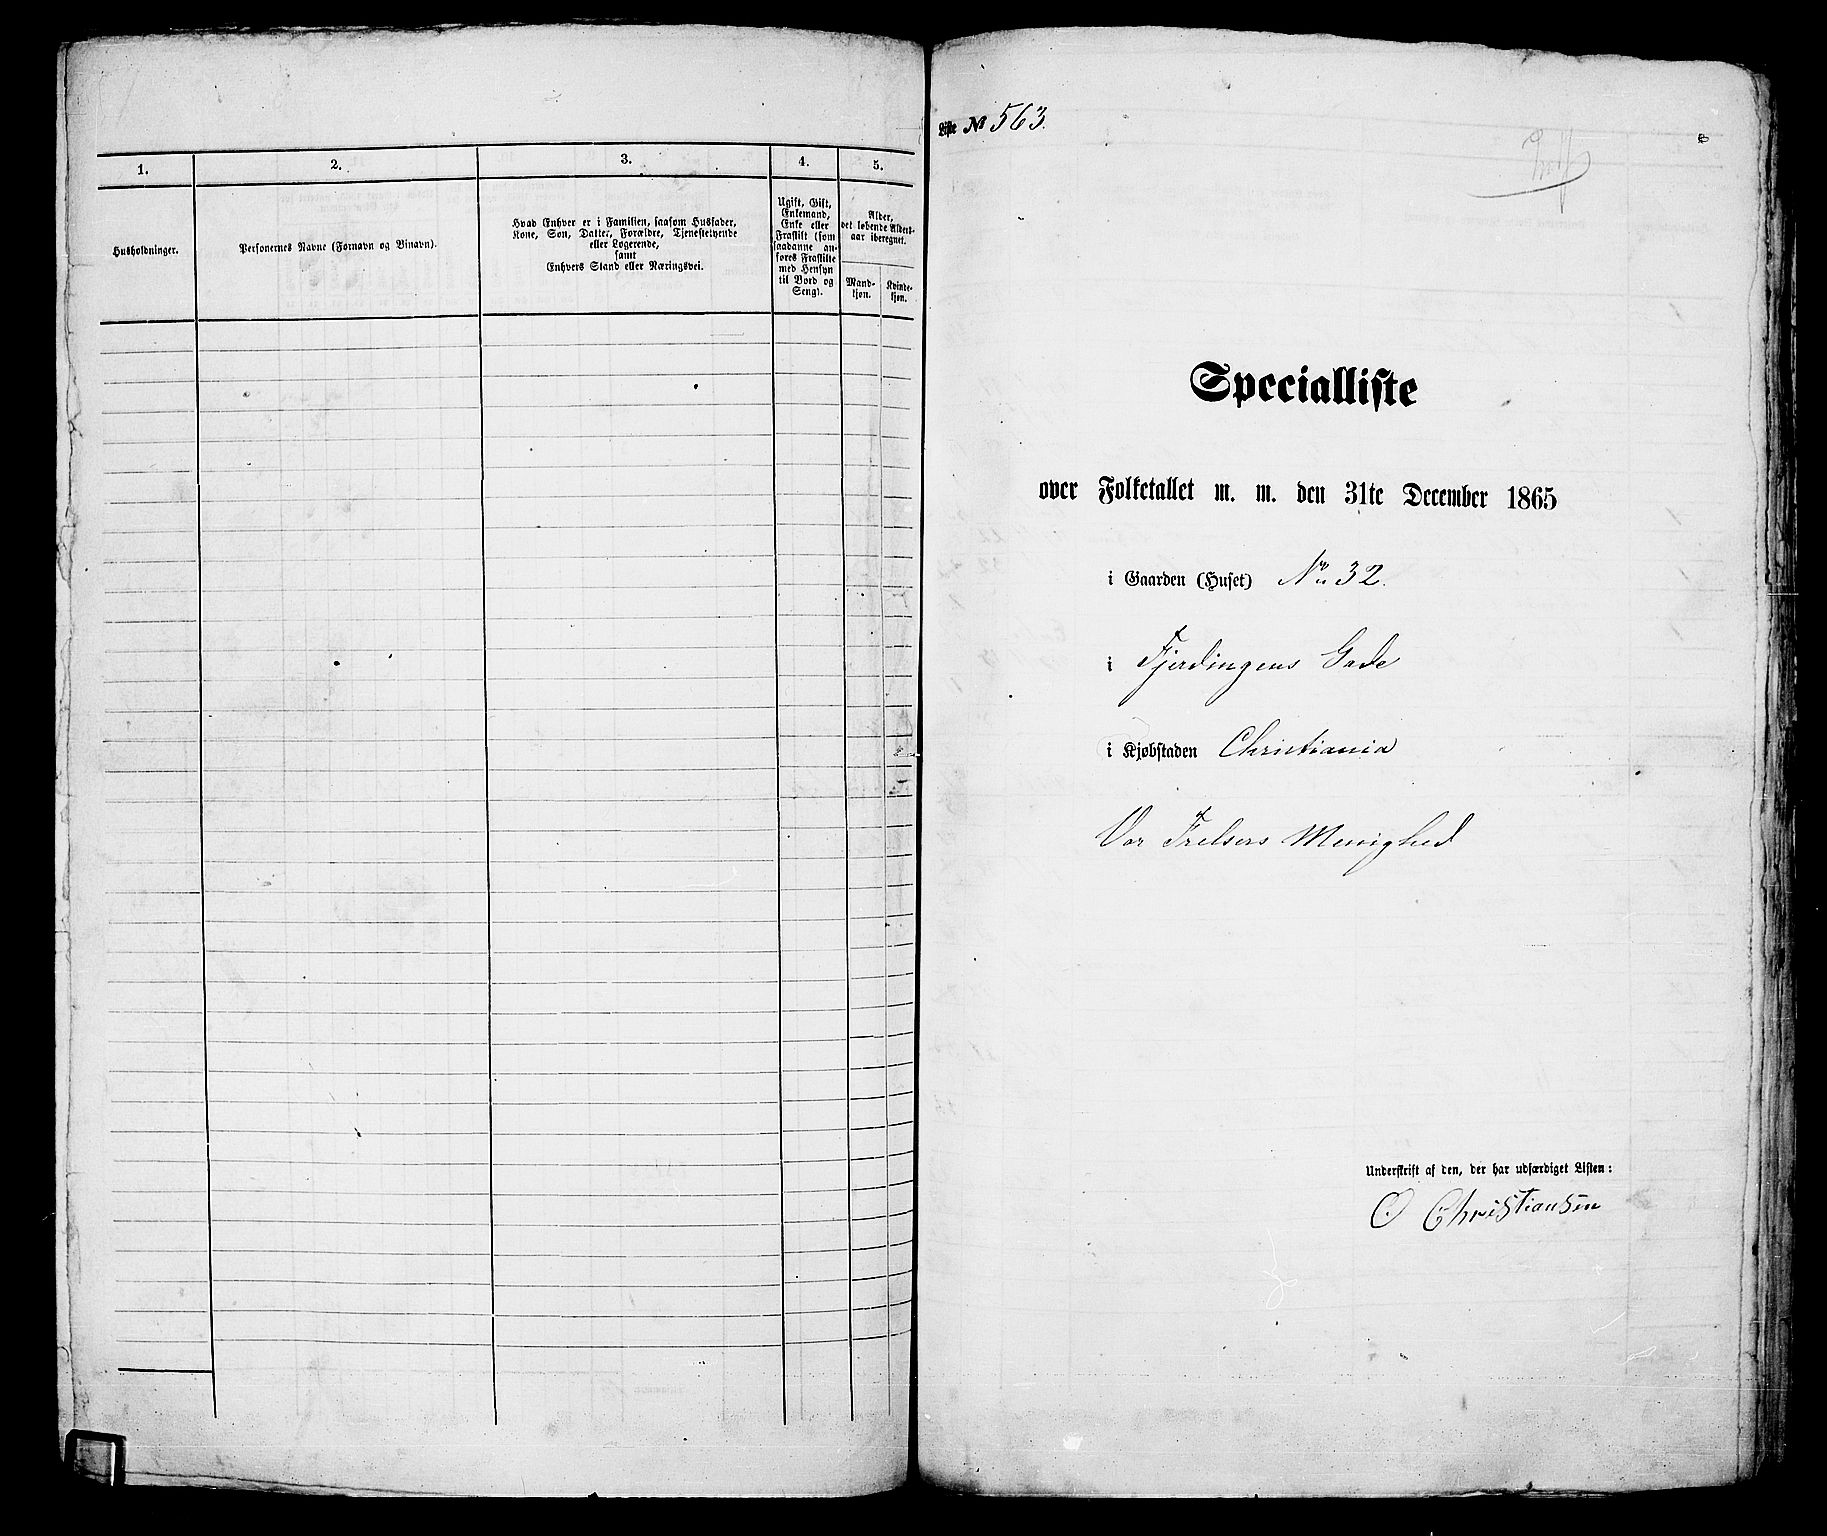 1.
2.
3.
4.
5.
Husholdninger.
Personernes Navne (Fornavn og Binavn).
Hvad Enhver er i Familien, saasom Husfader,
Kone, Søn, Datter, Forældre, Tjenestetyende
eller Logerende,
samt
Enhvers Stand eller Næringsvei.
Ugift, Gift,
Enkemand,
Enke eller
Fraskilt (som
saadanne an-
føres Fraskilte
med Hensyn
til Bord og
Seng).
Alder,
det løbende Alders-
aar iberegnet.
Mand-
kjøn.
Kvinde-
kjøn.
Liste № 563.
Specialliste
over Folketallet m. m. den 31te December 1865
i Gaarden (Huset) No 32.
i Fjerdingens Gade
i Kjøbstaden Christiania
Vor Frelsers Menighed
Underskrift af den, der har udfærdiget Listen:
O Christiansen